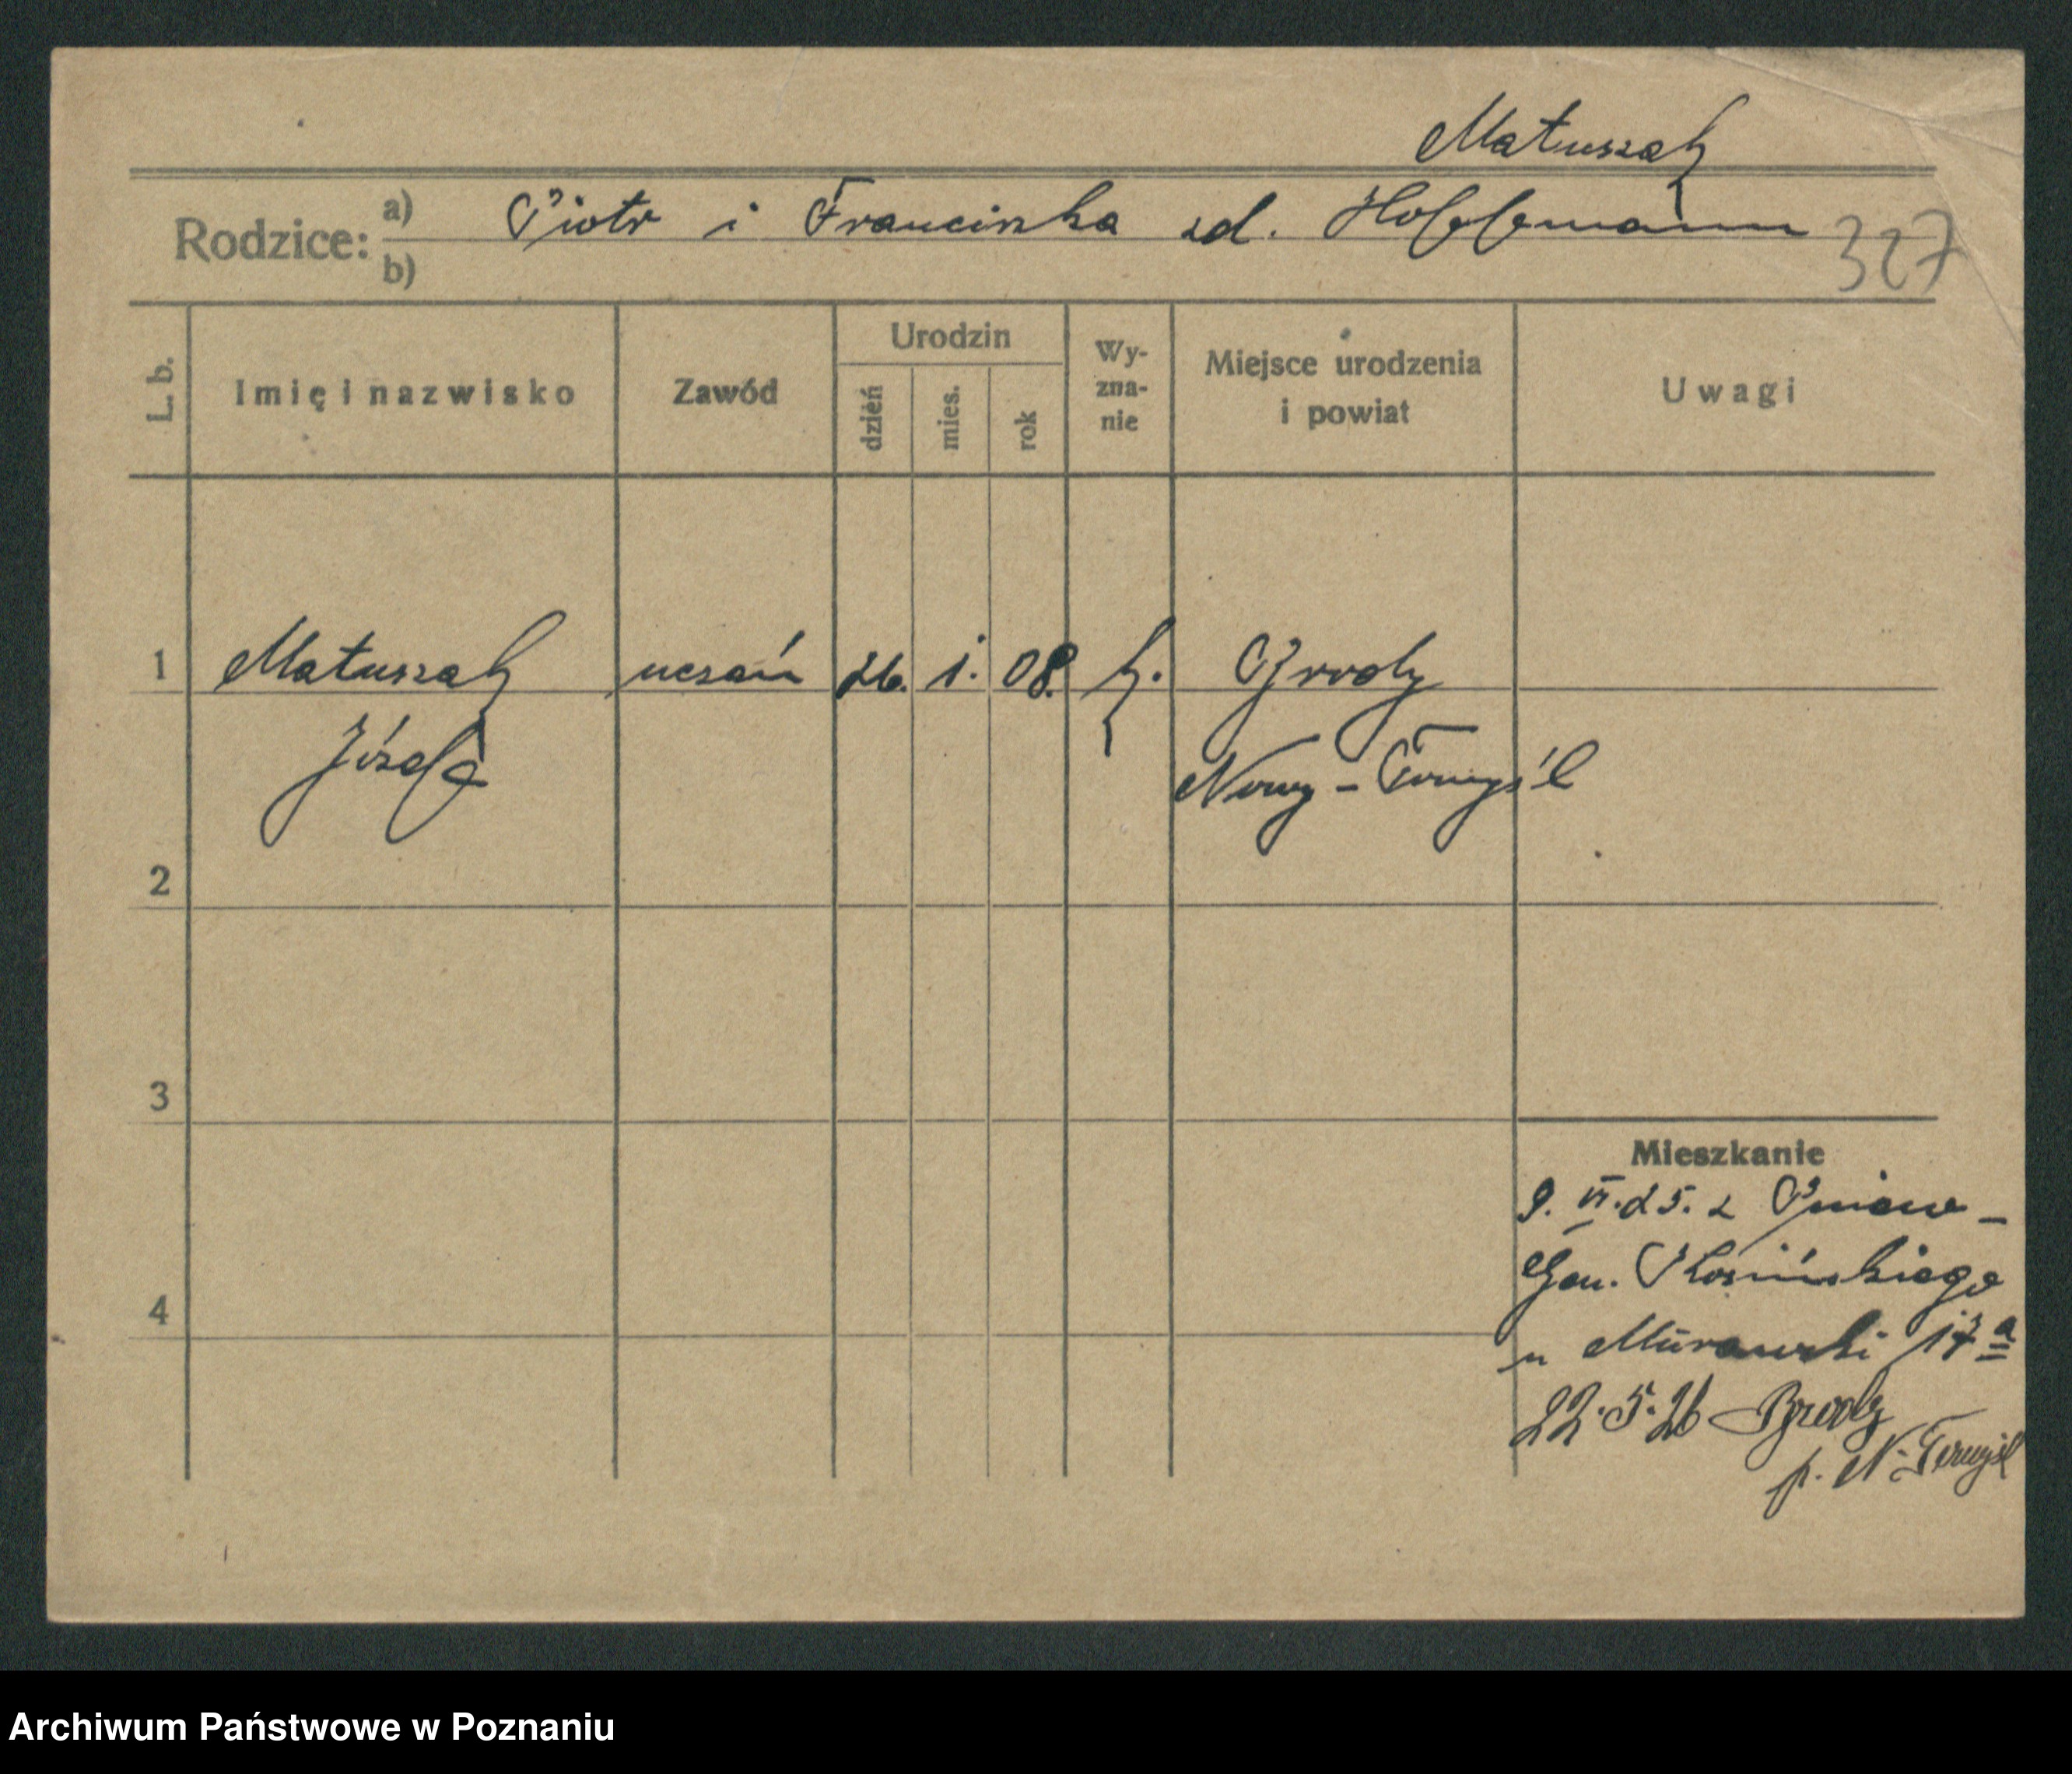 Matuszak
Rodzice: a) Piotr i Franciszka zd. Hoffmann
b)
327
L. b.
Imię i nazwisko
Zawód
Urodzin
dzień
mies.
rok
Wy-
zna-
nie
Miejsce urodzenia
i powiat
Uwagi
1 Matuszak uczeń 26. 1. 08. k. Brody
Józef Nowy-Tomyśl
2
3
Mieszkanie
9. VI. 25. z Pniew-
Gen. Kosińskiego
4
u Murawski 17a
22.5.26 Brody
p. N-Tomyśl
Archiwum Państwowe w Poznaniu